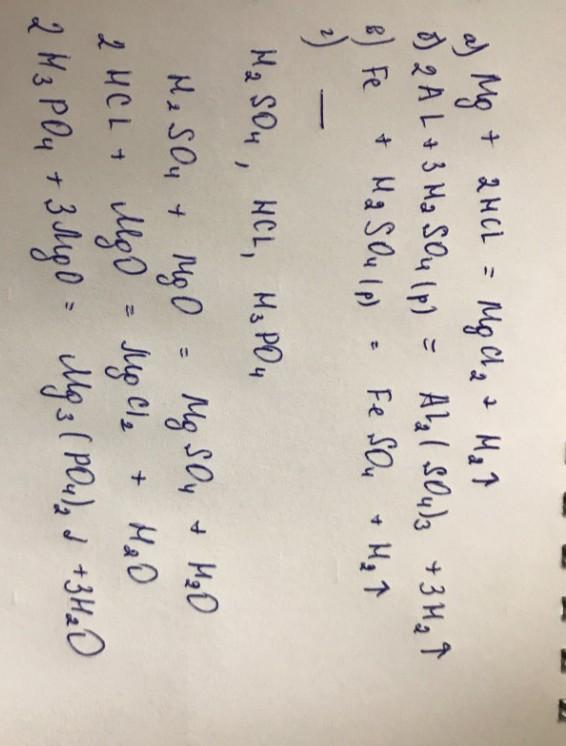 а) Mg + 2HCl = MgCl₂ + H₂↑
б) 2Al + 3H₂SO₄(р) = Al₂(SO₄)₃ + 3H₂↑
в) Fe + H₂SO₄(р) = FeSO₄ + H₂↑
г) —
H₂SO₄, HCl, H₃PO₄
H₂SO₄ + MgO = MgSO₄ + H₂O
2HCl + MgO = MgCl₂ + H₂O
2H₃PO₄ + 3MgO = Mg₃(PO₄)₂↓ + 3H₂O